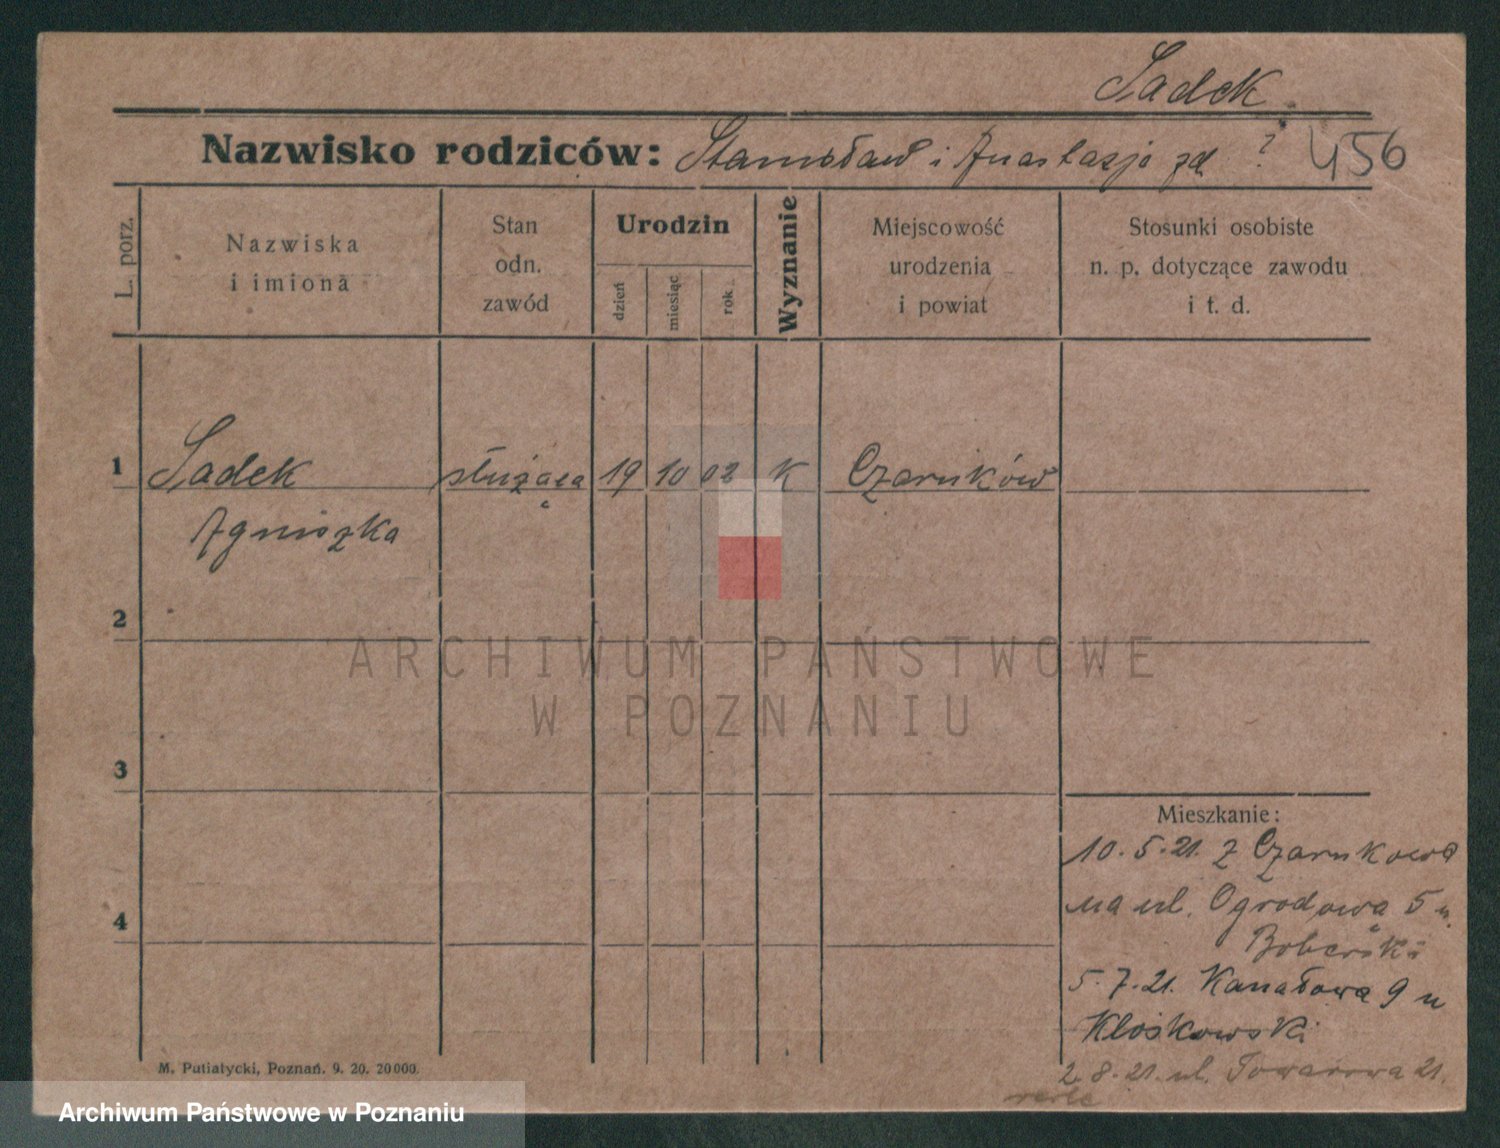 Sadek
Nazwisko rodziców: Stanisław i Anastazja zd ? 456
L. porz.
Nazwiska
i imiona
Stan
odn.
zawód
Urodzin
dzień
miesiąc
rok
Wyznanie
Miejscowość
urodzenia
i powiat
Stosunki osobiste
n. p. dotyczące zawodu
i t. d.
1 Sadek służąca 19 10 02 K Czarnków
Agniszka
2
ARCHIWUM PAŃSTWOWE
W POZNANIU
3
Mieszkanie:
10. 5. 21. z Czarnkowa
4 na ul. Ogrodowa 5 u.
5. 7. 21. Kanałowa 9 u
Kłoskowski
M. Putiatycki, Poznań. 9. 20. 20000.
2. 8. 21. ul. Towarowa 21.
Archiwum Państwowe w Poznaniu